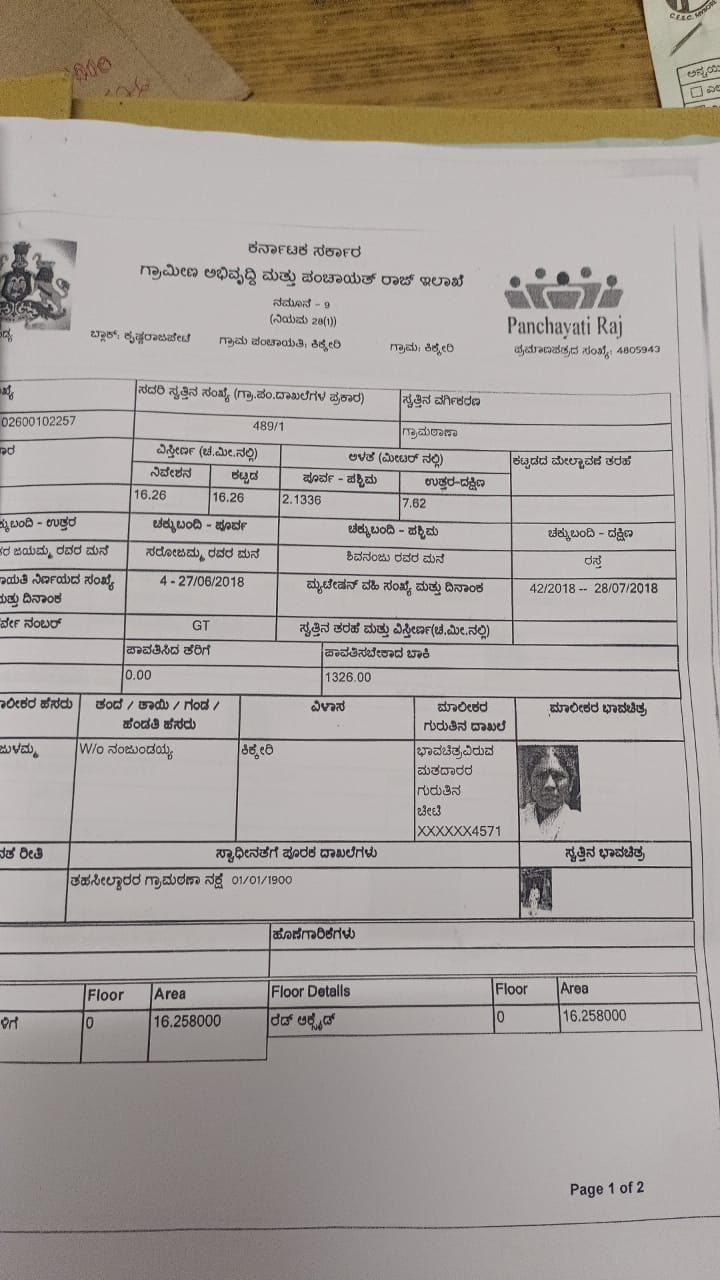 ಕರ್ನಾಟಕ ಸರ್ಕಾರ
ಗ್ರಾಮೀಣ ಅಭಿವೃದ್ಧಿ ಮತ್ತು ಪಂಚಾಯತ್ ರಾಜ್ ಇಲಾಖೆ
ನಮೂನೆ - 9
(ನಿಯಮ 28(1))
Panchayati Raj
ಬ್ಲಾಕ್: ಕೃಷ್ಣರಾಜಪೇಟೆ ಗ್ರಾಮ ಪಂಚಾಯತಿ: ಕಿಕ್ಕೇರಿ ಗ್ರಾಮ: ಕಿಕ್ಕೇರಿ ಪ್ರಮಾಣಪತ್ರದ ಸಂಖ್ಯೆ: 4805943
ಸದರಿ ಸ್ವತ್ತಿನ ಸಂಖ್ಯೆ (ಗ್ರಾ.ಪಂ.ದಾಖಲೆಗಳ ಪ್ರಕಾರ) ಸ್ವತ್ತಿನ ವರ್ಗಿಕರಣ
02600102257 489/1 ಗ್ರಾಮಠಾಣಾ
ವಿಸ್ತೀರ್ಣ (ಚ.ಮೀ.ನಲ್ಲಿ) ಅಳತೆ (ಮೀಟರ್ ನಲ್ಲಿ) ಕಟ್ಟಡದ ಮೇಲ್ಛಾವಣಿ ತರಹೆ
ನಿವೇಶನ ಕಟ್ಟಡ ಪೂರ್ವ - ಪಶ್ಚಿಮ ಉತ್ತರ-ದಕ್ಷಿಣ
16.26 16.26 2.1336 7.62
ಕ್ಕುಬಂದಿ - ಉತ್ತರ ಚಕ್ಕುಬಂದಿ - ಪೂರ್ವ ಚಕ್ಕುಬಂದಿ - ಪಶ್ಚಿಮ ಚಕ್ಕುಬಂದಿ - ದಕ್ಷಿಣ
ರ ಜಯಮ್ಮ ರವರ ಮನೆ ಸರೋಜಮ್ಮ ರವರ ಮನೆ ಶಿವನಂಜು ರವರ ಮನೆ ರಸ್ತೆ
ಾಯತಿ ನಿರ್ಣಯದ ಸಂಖ್ಯೆ 4 - 27/06/2018 ಮ್ಯುಟೇಷನ್ ವಹಿ ಸಂಖ್ಯೆ ಮತ್ತು ದಿನಾಂಕ 42/2018 -- 28/07/2018
ಮತ್ತು ದಿನಾಂಕ
ರ್ವೇ ನಂಬರ್ GT ಸ್ವತ್ತಿನ ತರಹೆ ಮತ್ತು ವಿಸ್ತೀರ್ಣ(ಚ.ಮೀ.ನಲ್ಲಿ)
ಪಾವತಿಸಿದ ತೆರಿಗೆ ಪಾವತಿಸಬೇಕಾದ ಬಾಕಿ
0.00 1326.00
ಾಲೀಕರ ಹೆಸರು ತಂದೆ / ತಾಯಿ / ಗಂಡ / ವಿಳಾಸ ಮಾಲೀಕರ ಮಾಲೀಕರ ಭಾವಚಿತ್ರ
ಹೆಂಡತಿ ಹೆಸರು ಗುರುತಿನ ದಾಖಲೆ
ಜುಳಮ್ಮ W/o ನಂಜುಂಡಯ್ಯ ಕಿಕ್ಕೇರಿ ಭಾವಚಿತ್ರವಿರುವ
ಮತದಾರರ
ಗುರುತಿನ
ಚೀಟಿ
XXXXXX4571
ನತೆ ರೀತಿ ಸ್ವಾಧೀನತೆಗೆ ಪೂರಕ ದಾಖಲೆಗಳು ಸ್ವತ್ತಿನ ಭಾವಚಿತ್ರ
ತಹಸೀಲ್ದಾರರ ಗ್ರಾಮಠಾಣಾ ನಕ್ಷೆ 01/01/1900
ಹೊಣೆಗಾರಿಕೆಗಳು
Floor Area Floor Details Floor Area
ಳಿಗೆ 0 16.258000 ರೆಡ್ ಆಕ್ಸೈಡ್ 0 16.258000
Page 1 of 2